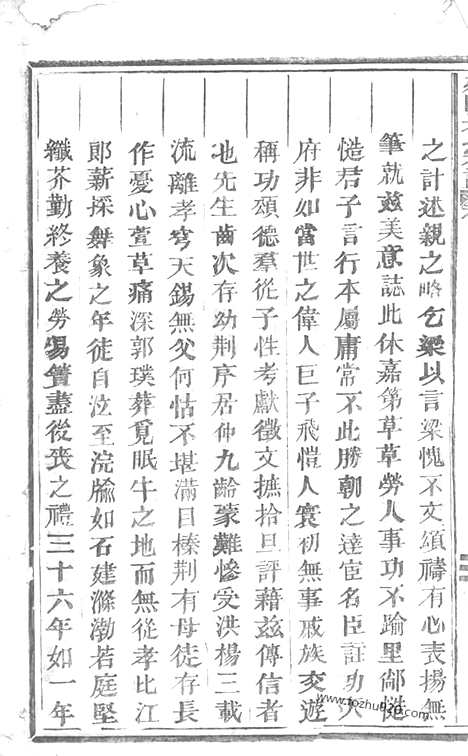 之計述親之略乞梁以言梁愧不文頌禱有心表揚無
筆就茲美意誌此休嘉第草草勞人事功不踰里鄰
慥君子言行本屬庸常不比勝朝之達宦名臣証功
府非如當世之偉人巨子飛愷人寰初無事戚族交遊
稱功頌德羣從子性考獻徵文摭拾旦評藉茲傳信者
也先生齒次存幼荆序居仲九齡蒙難慘受洪楊三載
流離孝穹天錫無父何怙不堪滿目榛荆有母徒存長
作憂心萱草痛深郭璞葬覓眠牛之地而無從孝比江
郎薪採舞象之年徒自泣至浣牏如石建滌渤若庭堅
纖芥勤終養之勞易簀盡從喪之禮三十六年如一年
www.tozhu920.com